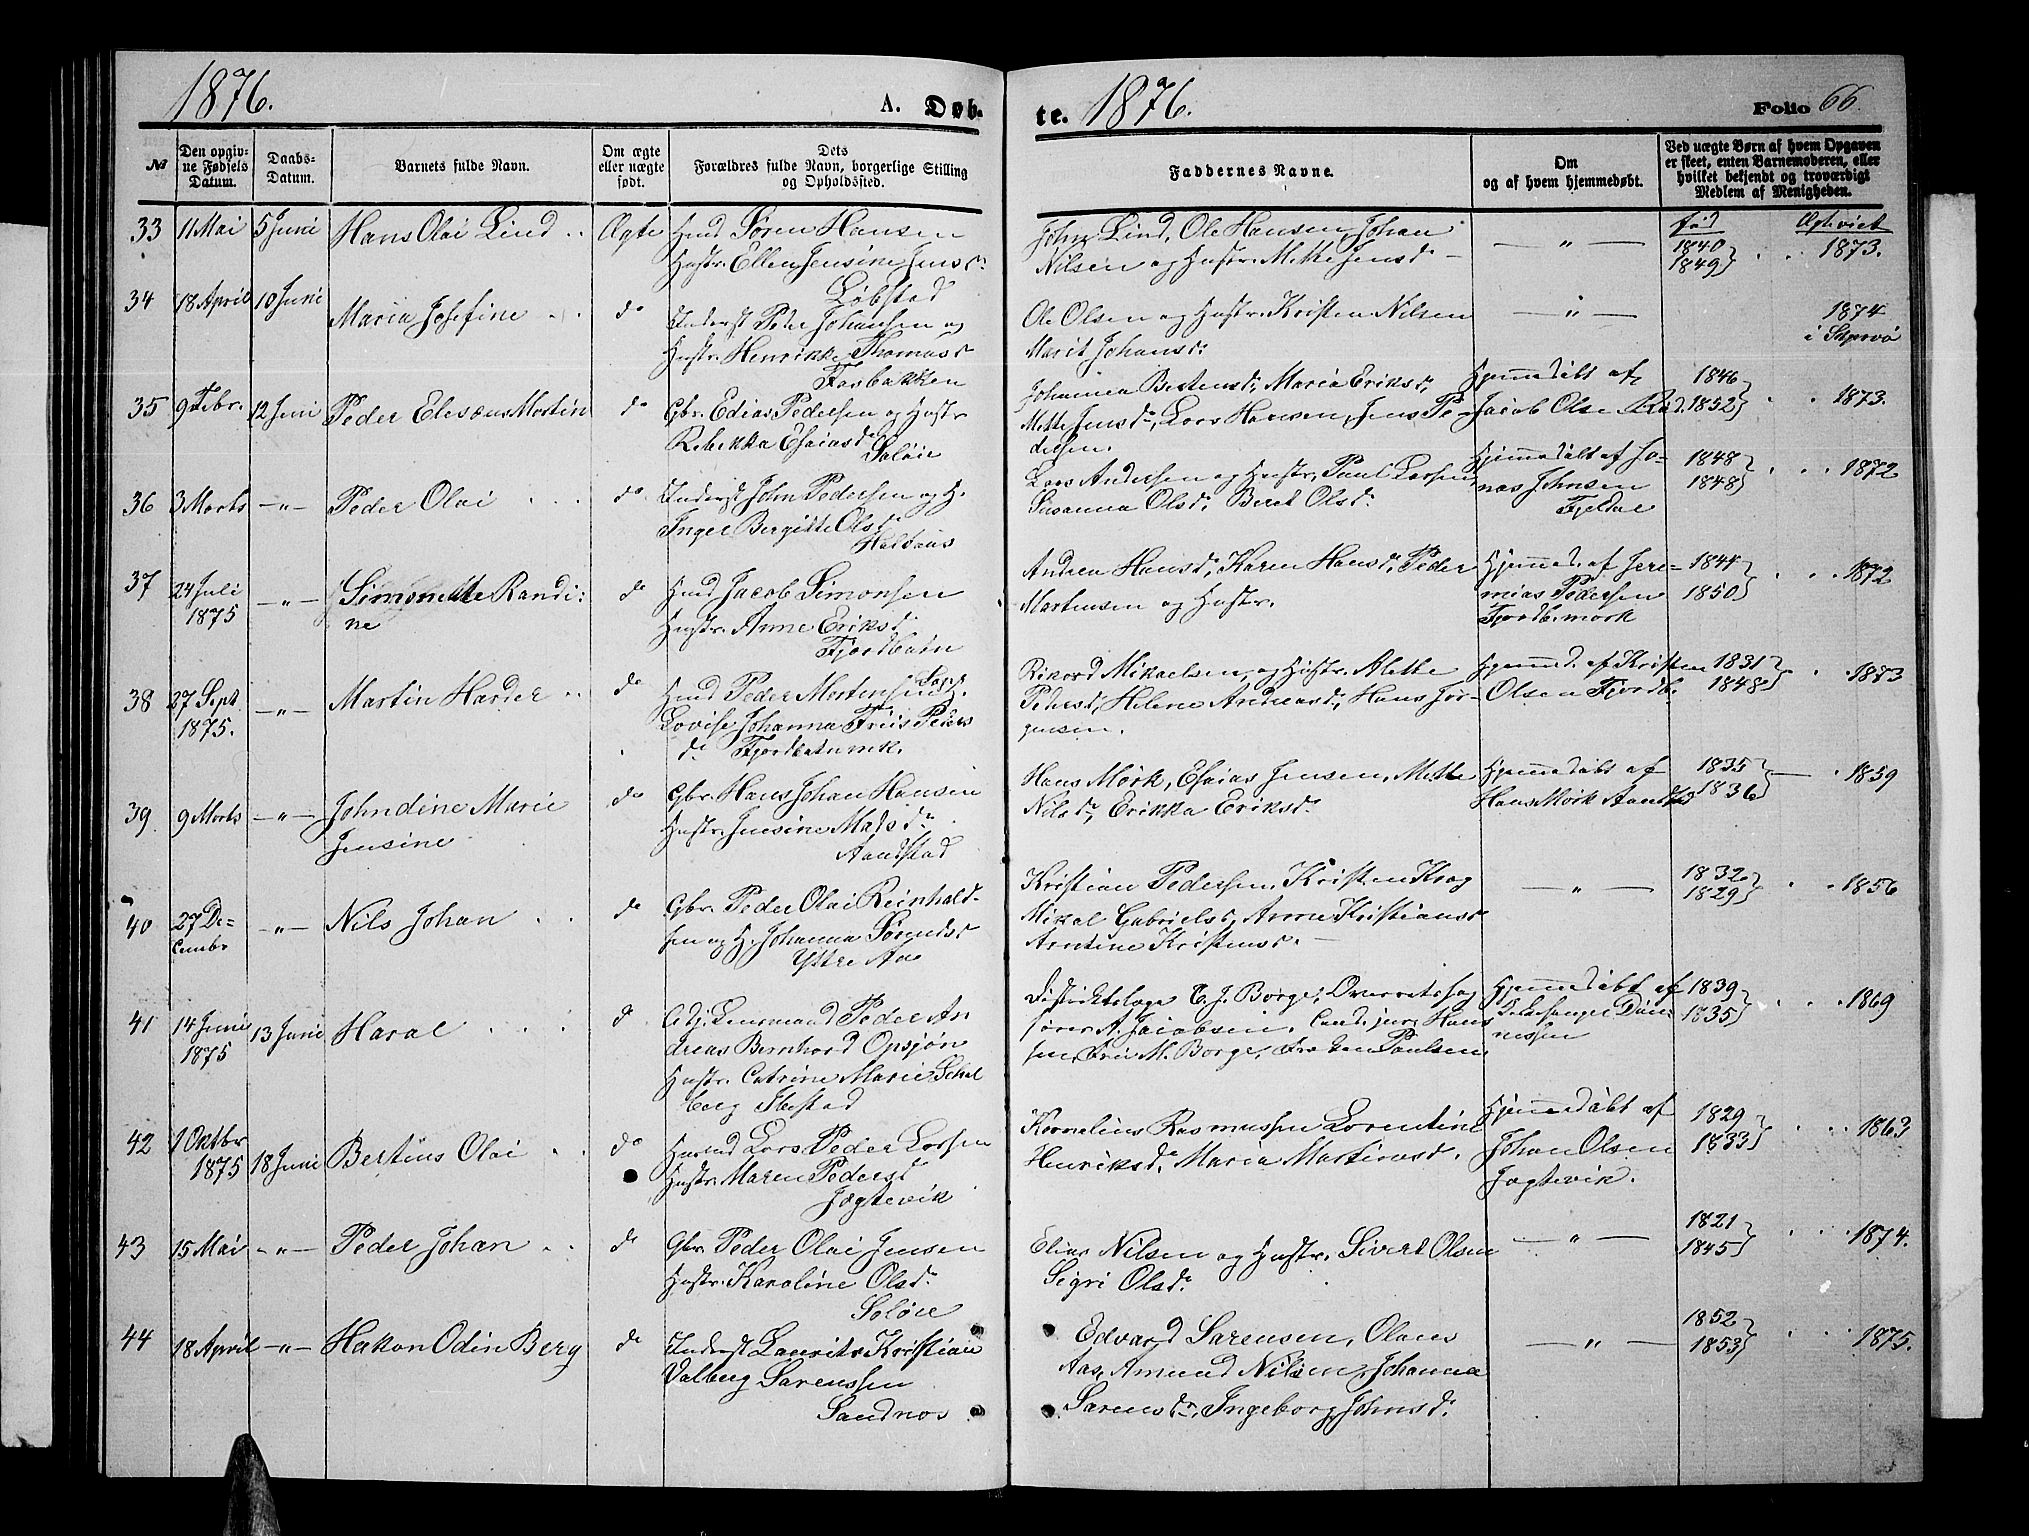 1876.
A. Døb-
te. 1876.
Folio 66.
№
Den opgiv-
ne Fødsels
Datum.
Daabs-
Datum.
Barnets fulde Navn.
Om ægte
eller uægte
født.
Dets
Forældres fulde Navn, borgerlige Stilling
og Opholdssted.
Faddernes Navne.
Om
og af hvem hjemmedøbt.
Ved uægte Børn af hvem Opgaven
er skeet, enten Barnemoderen, eller
hvilket bekjendt og troværdigt
Medlem af Menigheden.
33 11 Mai 5 Juni Hans Olai Lind Ægte
Hmd Søren Hansen
Hustr. Ellen Jensine Jensd.
Løbstad
John Lind, Ole Hansen, Johan
Nilsen og Hustr. Mette Jensd.
— " —
fød
1840
1849
1873.
34 18 April 10 Juni Maria Josefine do
Inderst Peder Johansen og
Hustr. Henrikke Thomasd
Forbakken
Ole Olsen og Hustr. Kristen Nilsen
Marit Johansd.
— " —
1874
i Skjervø
35 9 Febr. 12 Juni Peder Eleseus Mortin do
Gbr. Edias Pedersen og Hustr
Rebekka Esaiasd.
Soløie
Johannea Bertensd., Maria Eriksd.,
Mette Jensd., Lars Hansen, Jens Pe-
dersen.
Hjemmedøbt af
Jacob Olsen Rød.
1846
1852
1873.
36 3 Marts — " — Peder Olai do
Inderst John Pedersen og H.
Inger Bergitte Olsd.
Lars Andersen og Hustr., Paul Larsen,
Susanna Olsd. Beret Olsd.
Hjemmedøbt af Jo-
nas Johnsen
Fjeldal
1848
1848
1872
37 24 Juli
1875 — " — Simonette Randi-
ne do
Hmd Jacob Simonsen
Hustr. Anne Eriksd.
Fjordbotn
Andrea Hansd., Karen Hansd., Peder
Martensen og Hustr.
Hjemmed. af Jere-
mias Pedersen
Fjordb.mark
1844
1850
1872
38 27 Sept
1875. — " — Martin Harder do
Hmd Peder Mortensen
Lovise Johanna Friis Peders
d. Fjordbotnmk.
Rikard Mikaelsen og Hustr. Alette
Pedersd, Helene Andreasd., Hans Jør-
gensen.
Hjemmed. af Kristen
Olsen Fjordb.
1831
1848
1873
39 9 Marts — " — Johndine Marie
Jensine do
Gbr. Hans Johan Hansen
Hustr. Jensine Matsd.
Aandstad
Hans Mørk, Esaias Jensen, Mette
Nilsd., Erikka Eriksd.
Hjemmedøbt af
Hans Mørk
1835
1836
1859
40 27 De-
cembr — " — Nils Johan do
Gbr. Peder Olai Reinhald-
sen og H. Johanna Sørensd
Yttre Aa
Kristian Pedersen, Kristen Krog
Mikal Gabrielsd., Anne Kristiansd
Arntine Kristensd.
— " —
1832
1829
1856
41 14 Juni
1875 13 Juni Haral do
Lensmand Peder An
dreas Bernhard Opsjøn
Hustr. Catrine Marie
Ibestad
Distriktslæge C. J. Borge, Overretssag
fører A. Jacobsen, Cand. jur. Hans
sen, Frue M. Borge, Frøken Paulsen
Hjemmedøbt af
1839
1835
1869
42 1 Oktbr
1875 18 Juni Berteus Olai do
Husmd Lars Peder Larsen
Hustr. Maren Pedersd
Jægtevik
Kornelius Rasmussen Lorentine
Henriksd., Maria Martinusd.
Hjemmedøbt af
Johan Olsen
Jægtevik.
1829
1833
1863
43 15 Mai — " — Peder Johan do
Gbr. Peder Olai Jensen
Hustr. Karoline Olsd.
Soløie
Elias Nilsen og Hustr. Sivert Olsen
Sigri Olsd.
— " —
1821
1845
1874.
44 18 April — " — Hakon Odin Berg do
Inderst Laurits Kristian
Valberg Sørenssen
Sandnes
Edvard Sørensen, Olaus
Aas, Amund Nilsen, Johanna
Sørensdr., Ingeborg Johnsd.
— " —
1852
1853
1875.